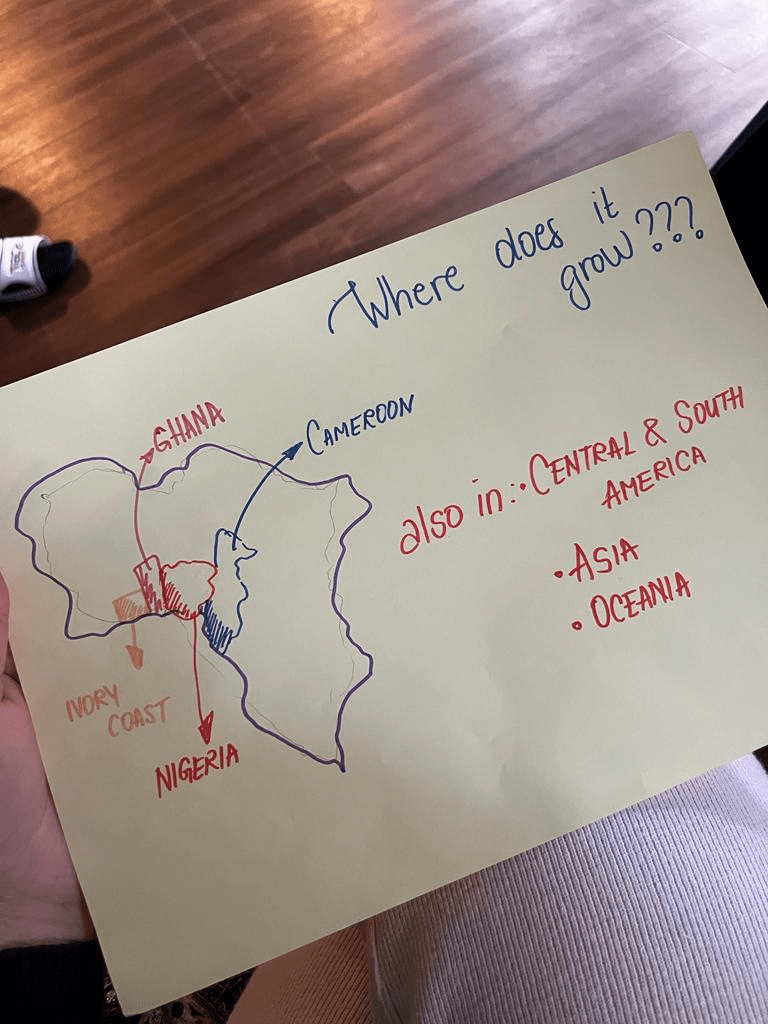 Where does it
grow???
GHANA
CAMEROON
also in: • CENTRAL & SOUTH
AMERICA
• ASIA
• OCEANIA
IVORY
COAST
NIGERIA